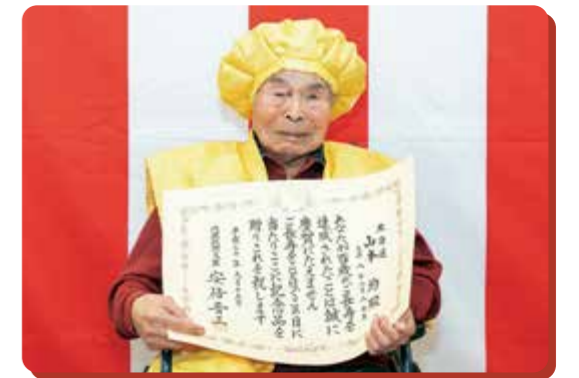 北海道
山本
あなたが百歳のご長寿を
達成されたことは誠に
慶賀にたえません
ご長寿をことほぐ本日に
当たりここに記念品を
贈りこれを祝します
内閣総理大臣 安倍晋三